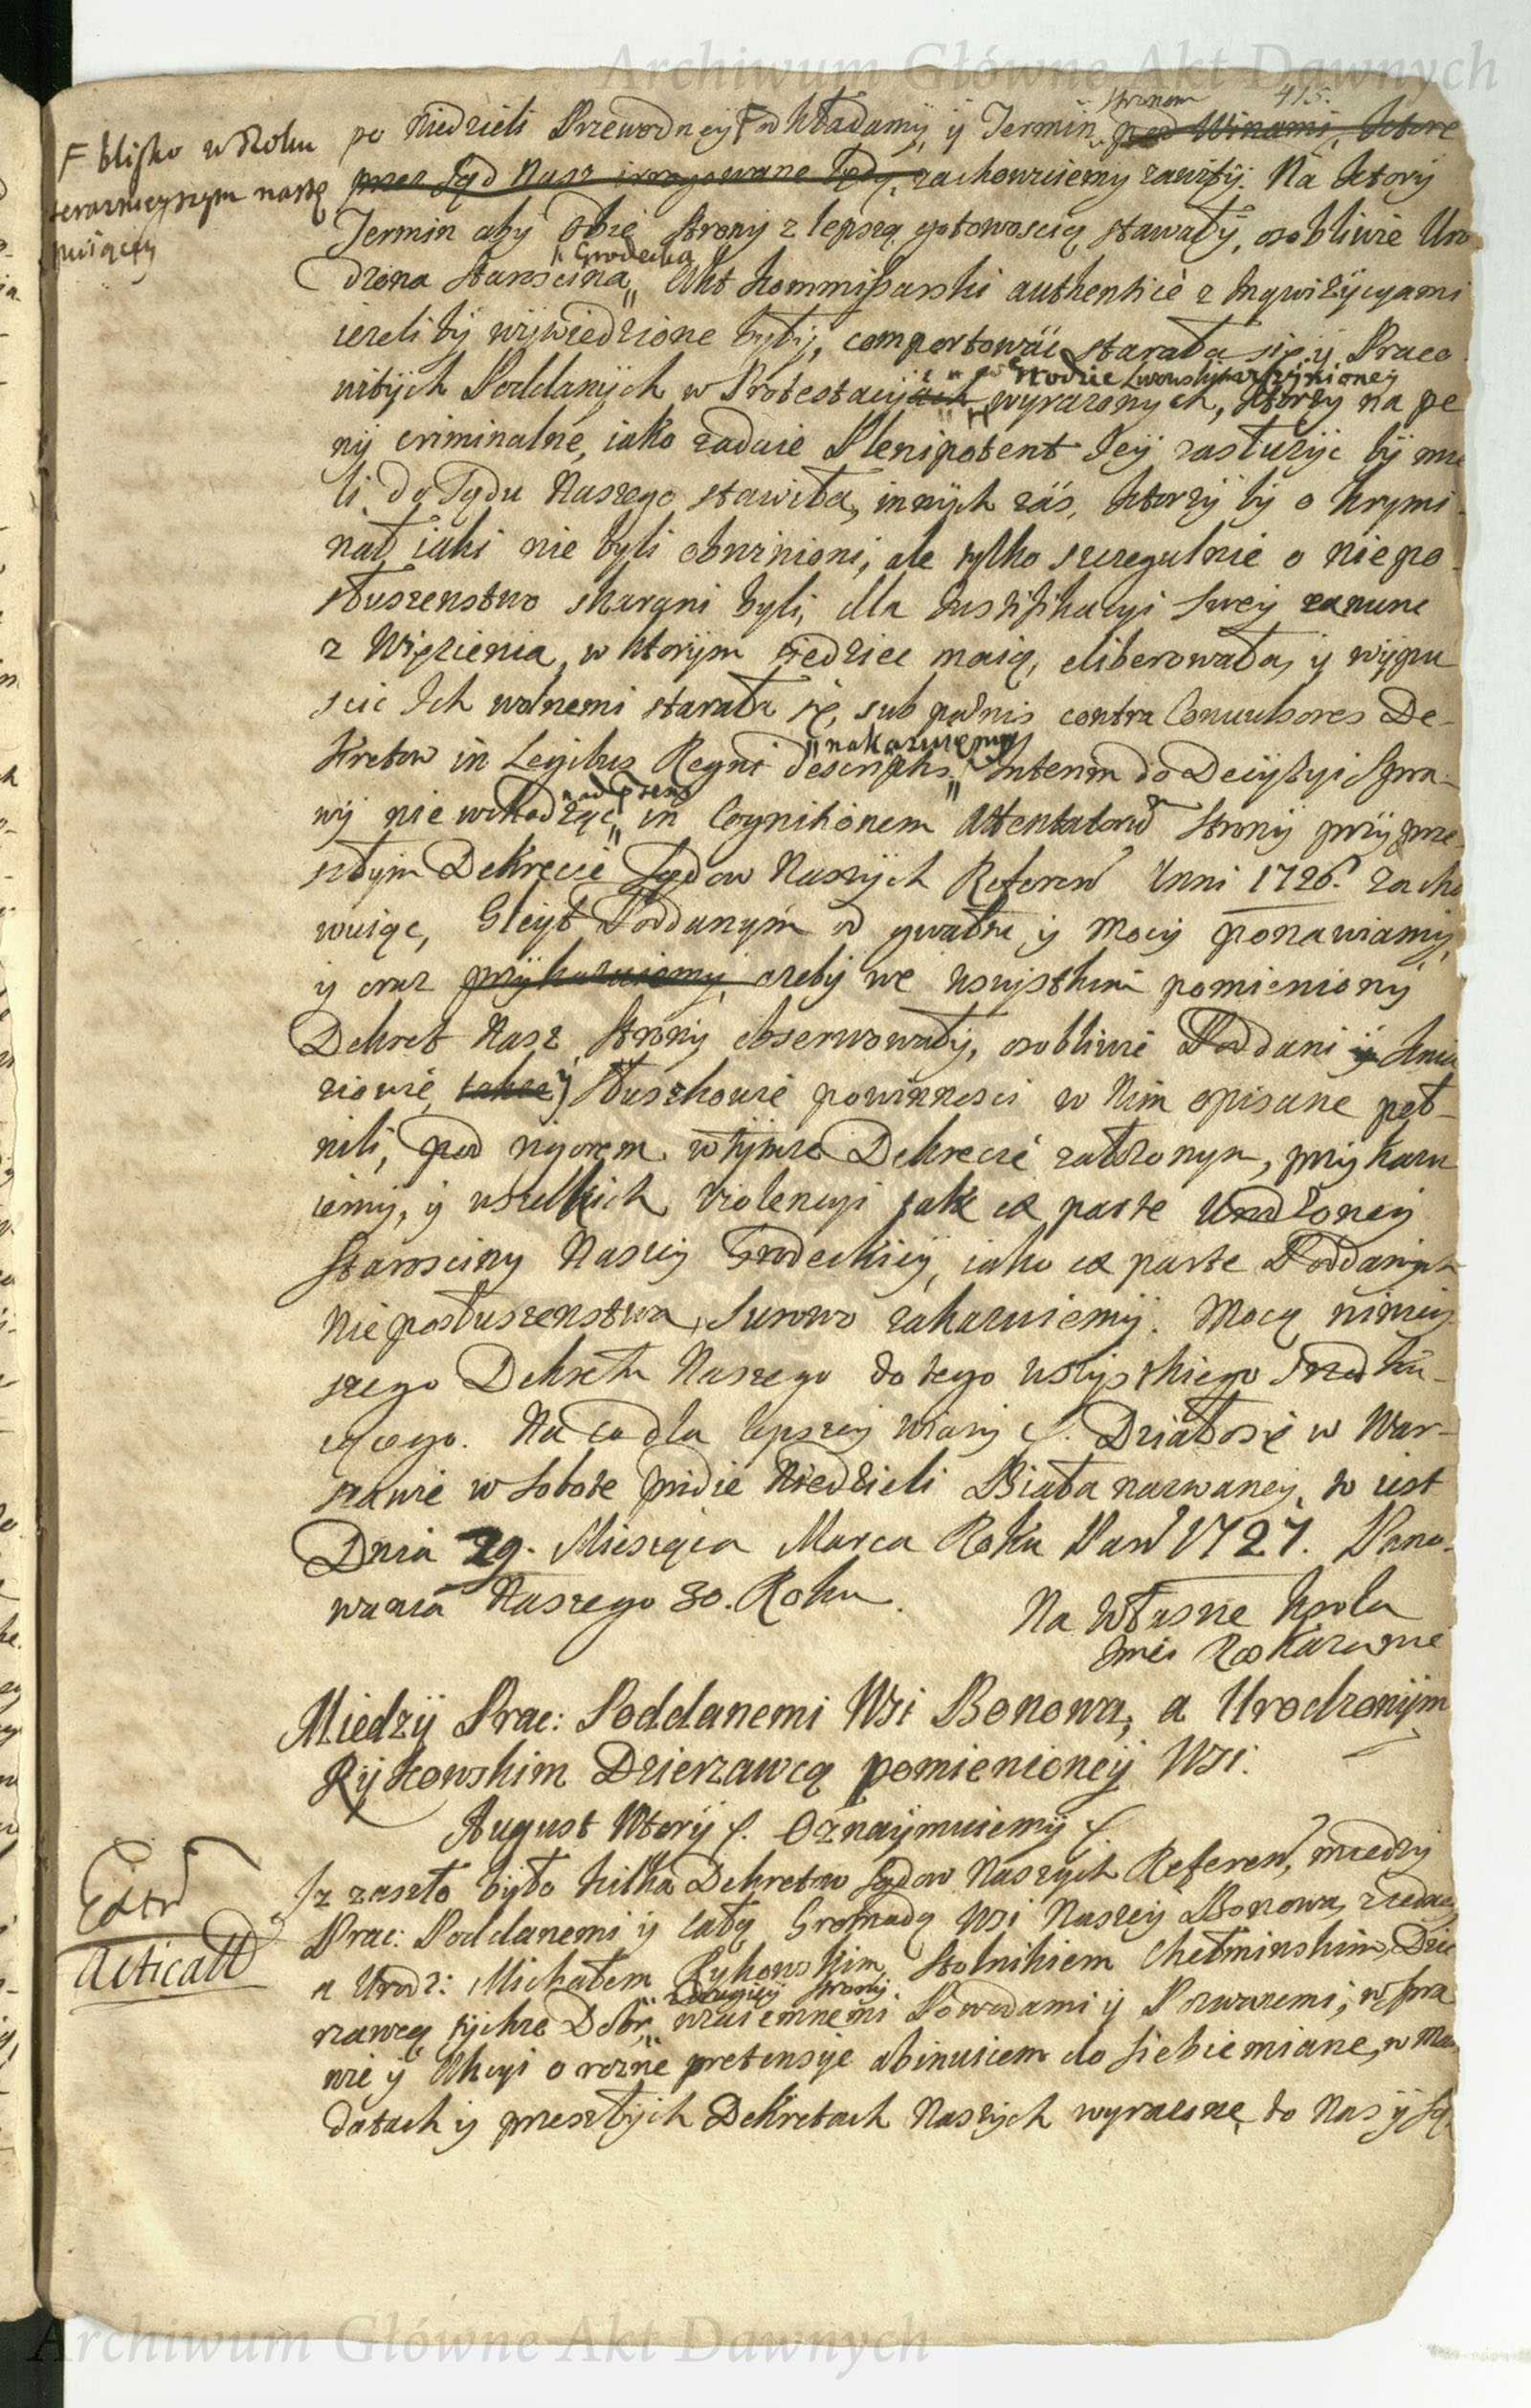 Archiwum Główne Akt Dawnych
stronom 415.
po Niedzieli Przewodney F odkładamy, y Termin pod Winami, ktore
F blisko w Roku
teraznieyszym nastę
puiącey
przez Sąd Nasz irrogowane będą, zachowuiemy zawity. Na ktory
Termin aby obie strony z lepszą gotowoscią stawały, osobliwie Uro
Grodecka
dzona Starościna, Akt Kommissarski authentice z Inqwizycyami
ieżeli by wywiedzione były, comportować starała się, y Praco
w Grodzie Lwowskim uczynioney
witych Poddanych w Protestacyiach wyrazonych, ktorzy na pe
ny criminalne, iako zadaie Plenipotent Jey zasłużyc by mie
li, do Sądu Naszego stawiła, innych zás, ktorzy by o krymi
nał iaki nie byli obwinioni, ale tylko szczegulnie o niepo
słuszenstwo skarzni byli, dla justifikacyi swey zarune
z Więzienia, w ktorym siedziec maią, eliberowała, y wypu
scic Ich wolnemi starała się, sub pænis contra Convulsores De-
nakazuiemy
kretow in Legibus Regni descriptis, Interim do Decyzyi Spra-
nadto teraz
wy nie wchodząc in Cognitionem Attentatorũ strony przy prze
szłym Dekrecie Sądow Naszych Referen̄ Anni 1726. zacho
wuiąc, Gleyt Poddanym od gwałtu y Mocy ponawiamy,
y oraz przykazuiemy, ażeby we wszystkim pomieniony
Dekret Nasz strony obserwowały, osobliwie Poddani y Knia
ziowie, także y Służkowie powinnosci w Nim opisane peł-
nili, pod rigorem w tymze Dekrecie załozonym, przykazu
iemy, y wszelkich violencyi tak ex parte Urodzoney
Starosciny Naszey Grodeckiey, iako ex parte Poddanych
Nieposłuszenstwa, surowo zakazuiemy. Mocą niniey
szego Dekretu Naszego do tego wszystkiego Przed ku-
iącego. Na co dla lepszey wiary &. Działo się w War-
szawie w Sobotę pridie Niedzieli Biała nazwaney, to iest
Dnia 29. Miesiąca Marca Roku Pań 1727. Pano-
wania Naszego 30. Roku.
Na Własne Krola
Jmci Rozkazanie
Miedzy Prac: Poddanemi Wsi Bonowa, a Urodzonym
Rykowskim Dzierzawcą pomienioney Wsi.
August Wtory &. Oznaymuiemy &.
Extrd
Acticatũ
Iz zaszło było kilka Dekretow Sądow Naszych Referen̄, miedzy
Prac: Poddanemi y całą Gromadą Wsi Naszey Bonowa, z iedney
a Urodz: Michałem Rykowskim, Stolnikiem Chełminskim, Dzie
z drugiey strony
rzawcą tychze Dobr, wzaiemnemi Powodami y Pozwanemi; w Spra
wie y Akcyi o rozne pretensye abinvicem do siebie miane, w Man
datach y przeszłych Dekretach Naszych wyrazone, do Nas y Są
Archiwum Główne Akt Dawnych